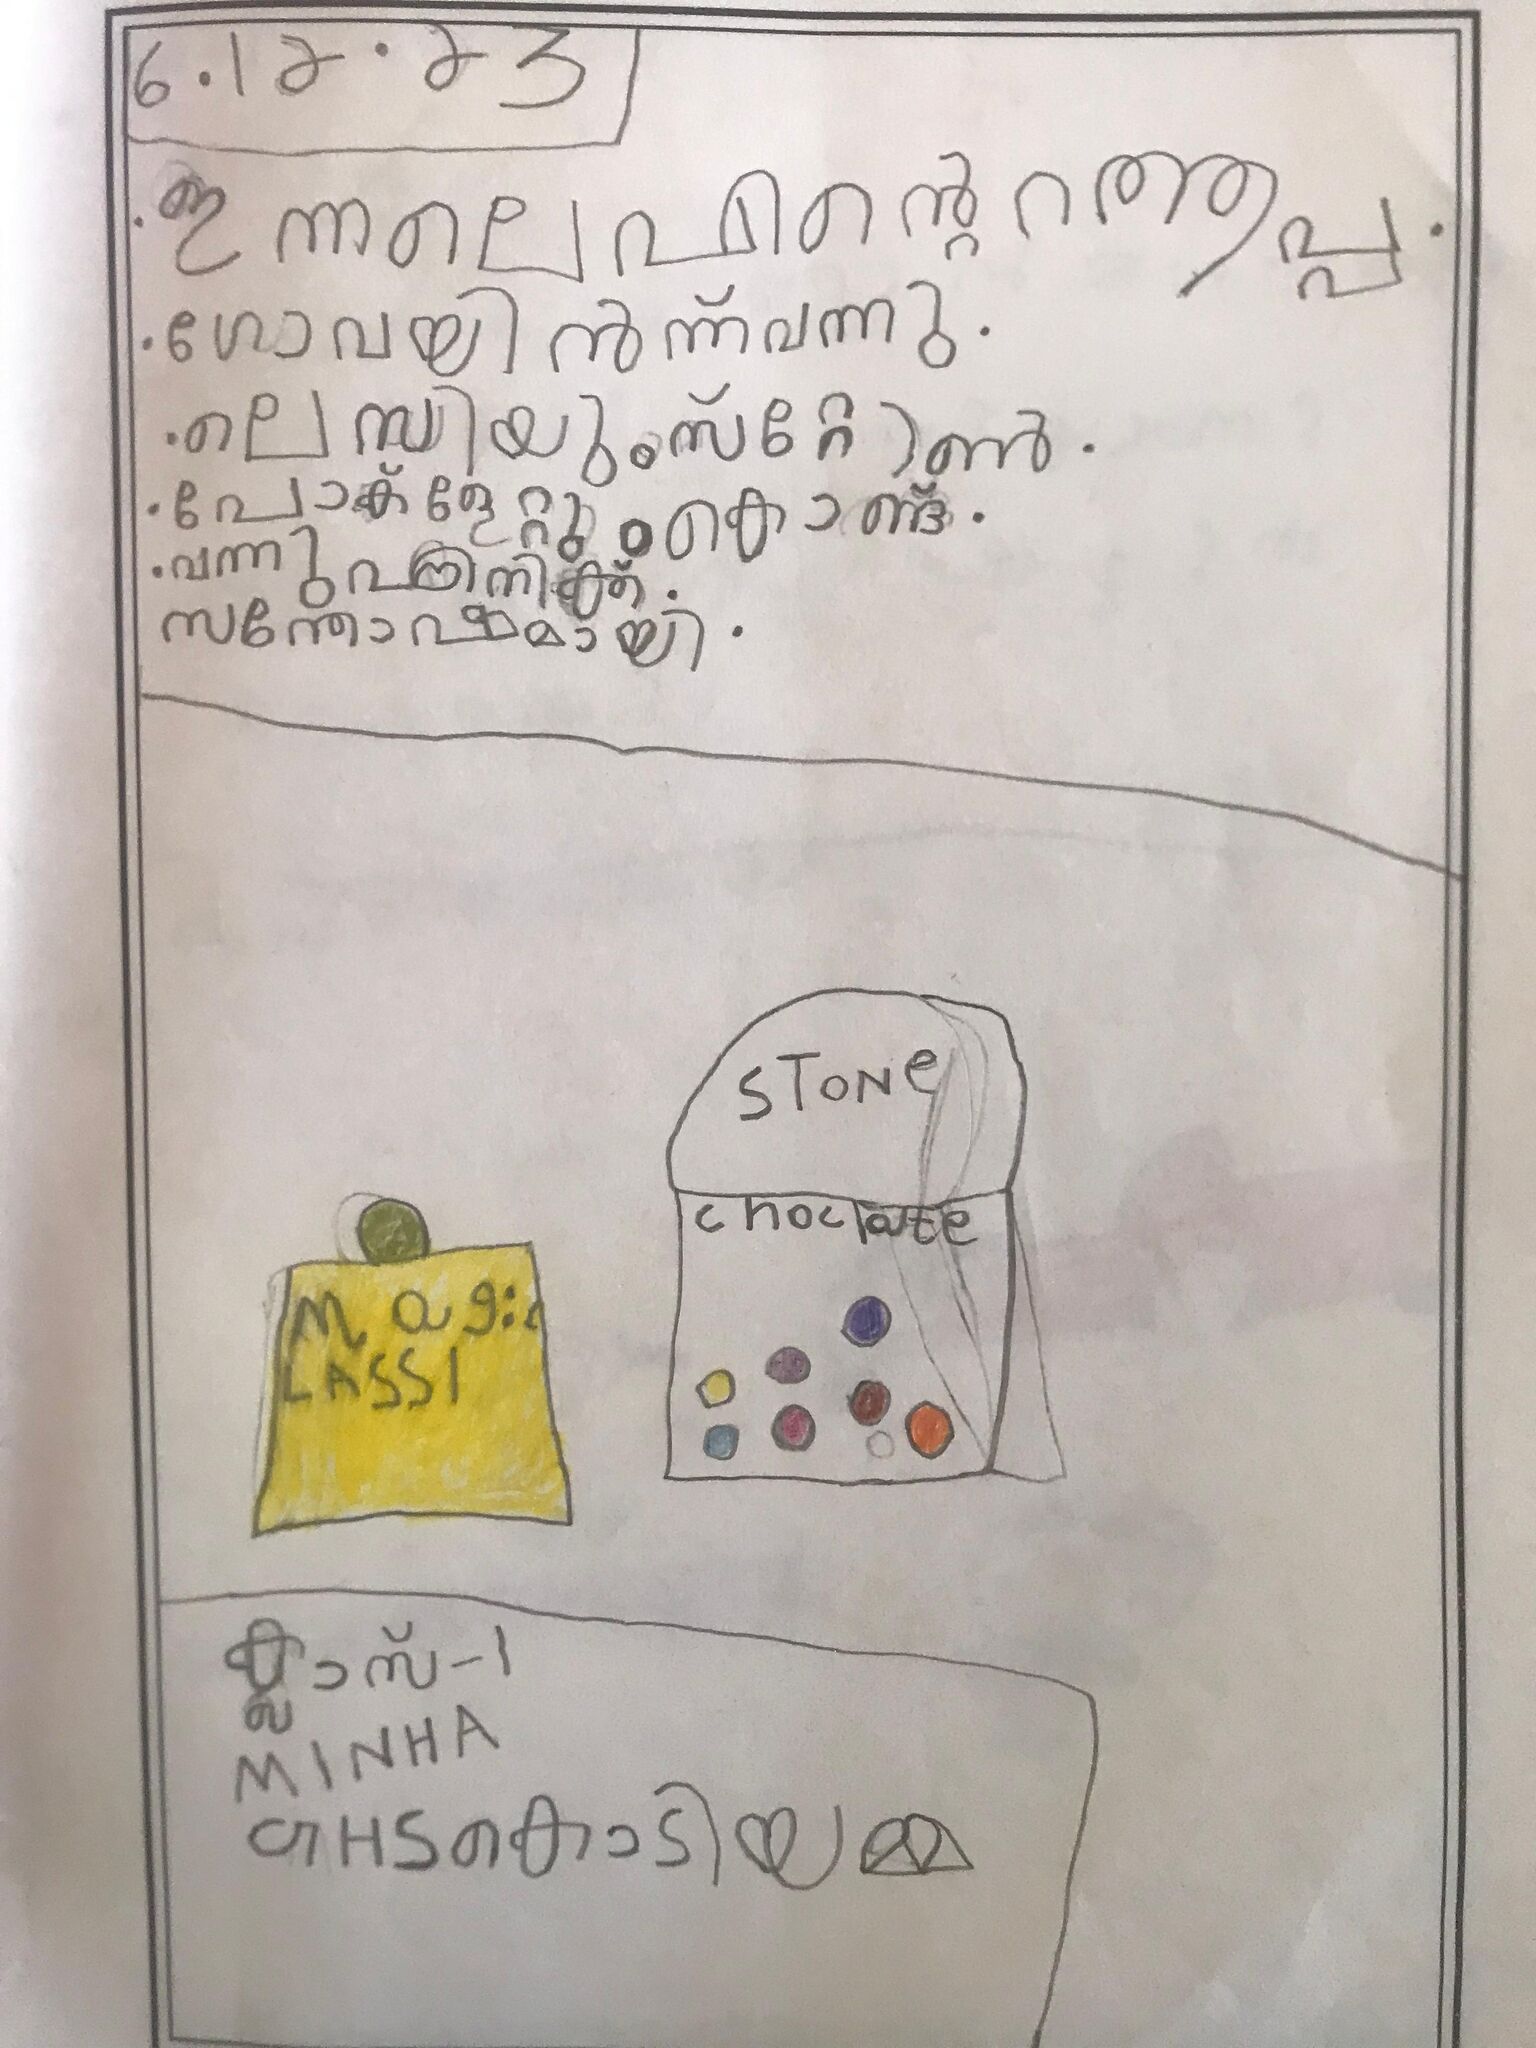 6.12.23
ഇന്നലെ എന്റെ ആപ്പ.
ഗോവയിൽന്ന് വന്നു.
ലെസിയും സ്റ്റോൺ.
ചോക്ളേറ്റും കൊണ്ട്.
വന്നു എനിക്ക്.
സന്തോഷമായി.
STONe
choclate
magic
LASSI
ക്ലാസ്-1
MINHA
GHS കൊടിയമ്മ